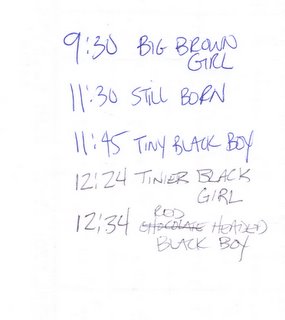 9:30 BIG BROWN
GIRL
11:30 STILL BORN
11:45 TINY BLACK BOY
12:24 TINIER BLACK
GIRL
RED
12:34 CHOCOLATE HEADED
BLACK BOY